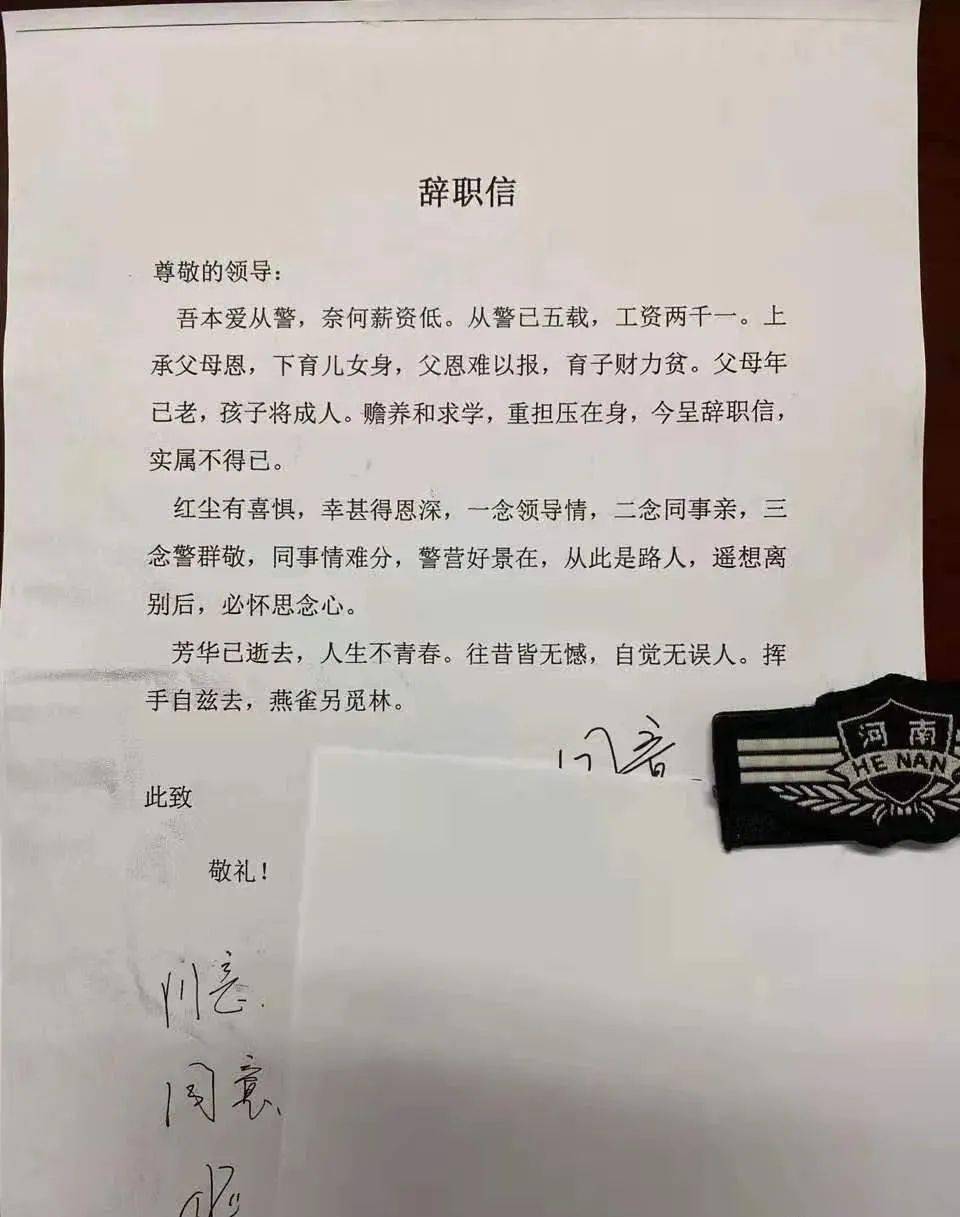 辞职信
尊敬的领导：
吾本爱从警，奈何薪资低。从警已五载，工资两千一。上
承父母恩，下育儿女身，父恩难以报，育子财力贫。父母年
已老，孩子将成人。赡养和求学，重担压在身，今呈辞职信，
实属不得已。
红尘有喜惧，幸甚得恩深，一念领导情，二念同事亲，三
念警群敬，同事情难分，警营好景在，从此是路人，遥想离
别后，必怀思念心。
芳华已逝去，人生不青春。往昔皆无憾，自觉无误人。挥
手自兹去，燕雀另觅林。
河南
HE NAN
此致
敬礼！
同意
同意